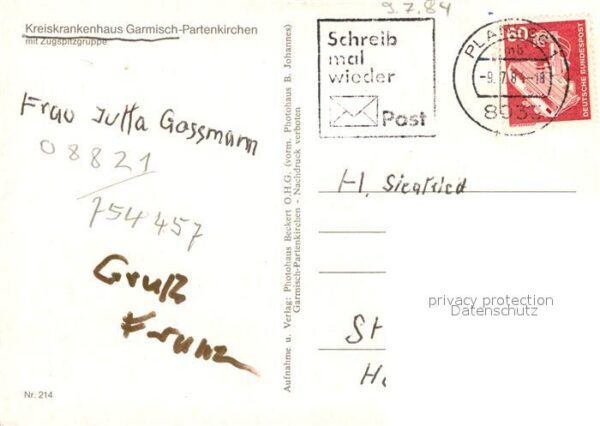 Kreiskrankenhaus Garmisch-Partenkirchen
mit Zugspitzgruppe
9.7.84
Schreib
mal
wieder
Post
-9.7.8 -18
60
DEUTSCHE BUNDESPOST
Frau Jutta Gassmann
08821
754457
Gruß
Franz
Nr. 214
Aufnahme u. Verlag: Photohaus Beckert O.H.G. (vorm. Photohaus B. Johannes)
Garmisch-Partenkirchen - Nachdruck verboten
H. Siegfried
privacy protection
Datenschutz
St
Ha